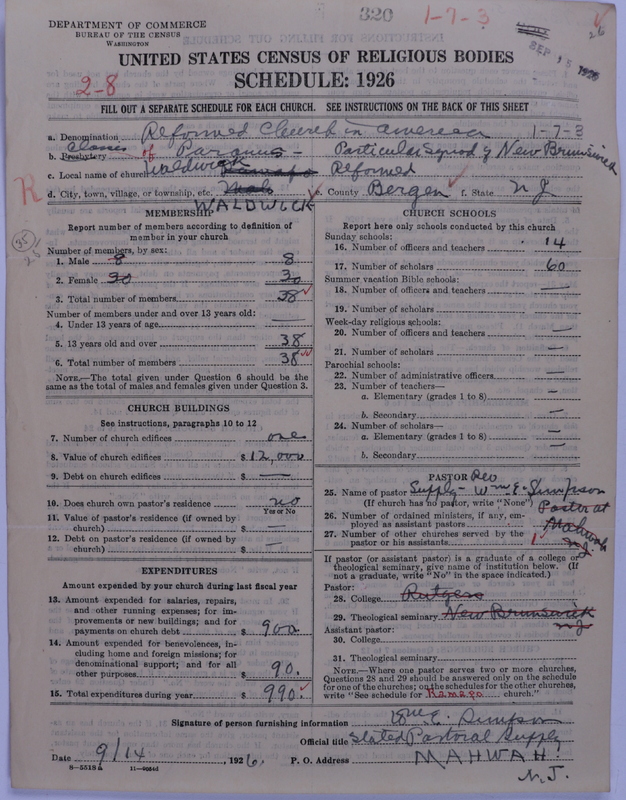 DEPARTMENT OF COMMERCE
BUREAU OF THE CENSUS
WASHINGTON
320
1-7-3
26
SEP 15 1926
UNITED STATES CENSUS OF RELIGIOUS BODIES
SCHEDULE: 1926
2-8
FILL OUT A SEPARATE SCHEDULE FOR EACH CHURCH. SEE INSTRUCTIONS ON THE BACK OF THIS SHEET
a. Denomination Reformed Church in America 1-7-3
b. Presbytery Classis of Paramus - Particular Synod of New Brunswick
c. Local name of church Waldwick Ramapo Reformed
d. City, town, village, or township, etc. WALDWICK e. County Bergen f. State N J
R
35
25
MEMBERSHIP
Report number of members according to definition of
member in your church
Number of members, by sex:
1. Male 8 8
2. Female 30 30
3. Total number of members 38
Number of members under and over 13 years old:
4. Under 13 years of age —
5. 13 years old and over 38
6. Total number of members 38
NOTE.—The total given under Question 6 should be the
same as the total of males and females given under Question 3.
CHURCH BUILDINGS
See instructions, paragraphs 10 to 12
7. Number of church edifices one
8. Value of church edifices $12,000
9. Debt on church edifices $ —
10. Does church own pastor's residence no
Yes or No
11. Value of pastor's residence (if owned by
church) $ —
12. Debt on pastor's residence (if owned by
church) $ —
EXPENDITURES
Amount expended by your church during last fiscal year
13. Amount expended for salaries, repairs,
and other running expenses; for im-
provements or new buildings; and for
payments on church debt $ 900
14. Amount expended for benevolences, in-
cluding home and foreign missions; for
denominational support; and for all
other purposes $ 90.
15. Total expenditures during year $ 990.
CHURCH SCHOOLS
Report here only schools conducted by this church
Sunday schools:
16. Number of officers and teachers 14
17. Number of scholars 60
Summer vacation Bible schools:
18. Number of officers and teachers —
19. Number of scholars —
Week-day religious schools:
20. Number of officers and teachers —
21. Number of scholars —
Parochial schools:
22. Number of administrative officers —
23. Number of teachers—
a. Elementary (grades 1 to 8) —
b. Secondary —
24. Number of scholars—
a. Elementary (grades 1 to 8) —
b. Secondary —
PASTOR Rev
25. Name of pastor Supply - Wm E. Simpson
(If church has no pastor, write "None") Pastor at
26. Number of ordained ministers, if any, em-
ployed as assistant pastors Mahwah
27. Number of other churches served by the
pastor or his assistants 1 N J.
If pastor (or assistant pastor) is a graduate of a college or
theological seminary, give name of institution below. (If
not a graduate, write "No" in the space indicated.)
Pastor:
28. College Rutgers
29. Theological seminary New Brunswick
N J
Assistant pastor:
30. College
31. Theological seminary
NOTE.—Where one pastor serves two or more churches,
Questions 28 and 29 should be answered only on the schedule
for one of the churches; on the schedules for the other churches,
write "See schedule for Ramapo church."
Signature of person furnishing information Wm E. Simpson
Official title Stated Pastoral Supply
Date 9/14, 1926. P. O. Address MAHWAH
N. J.
8—5518a 11—9054d